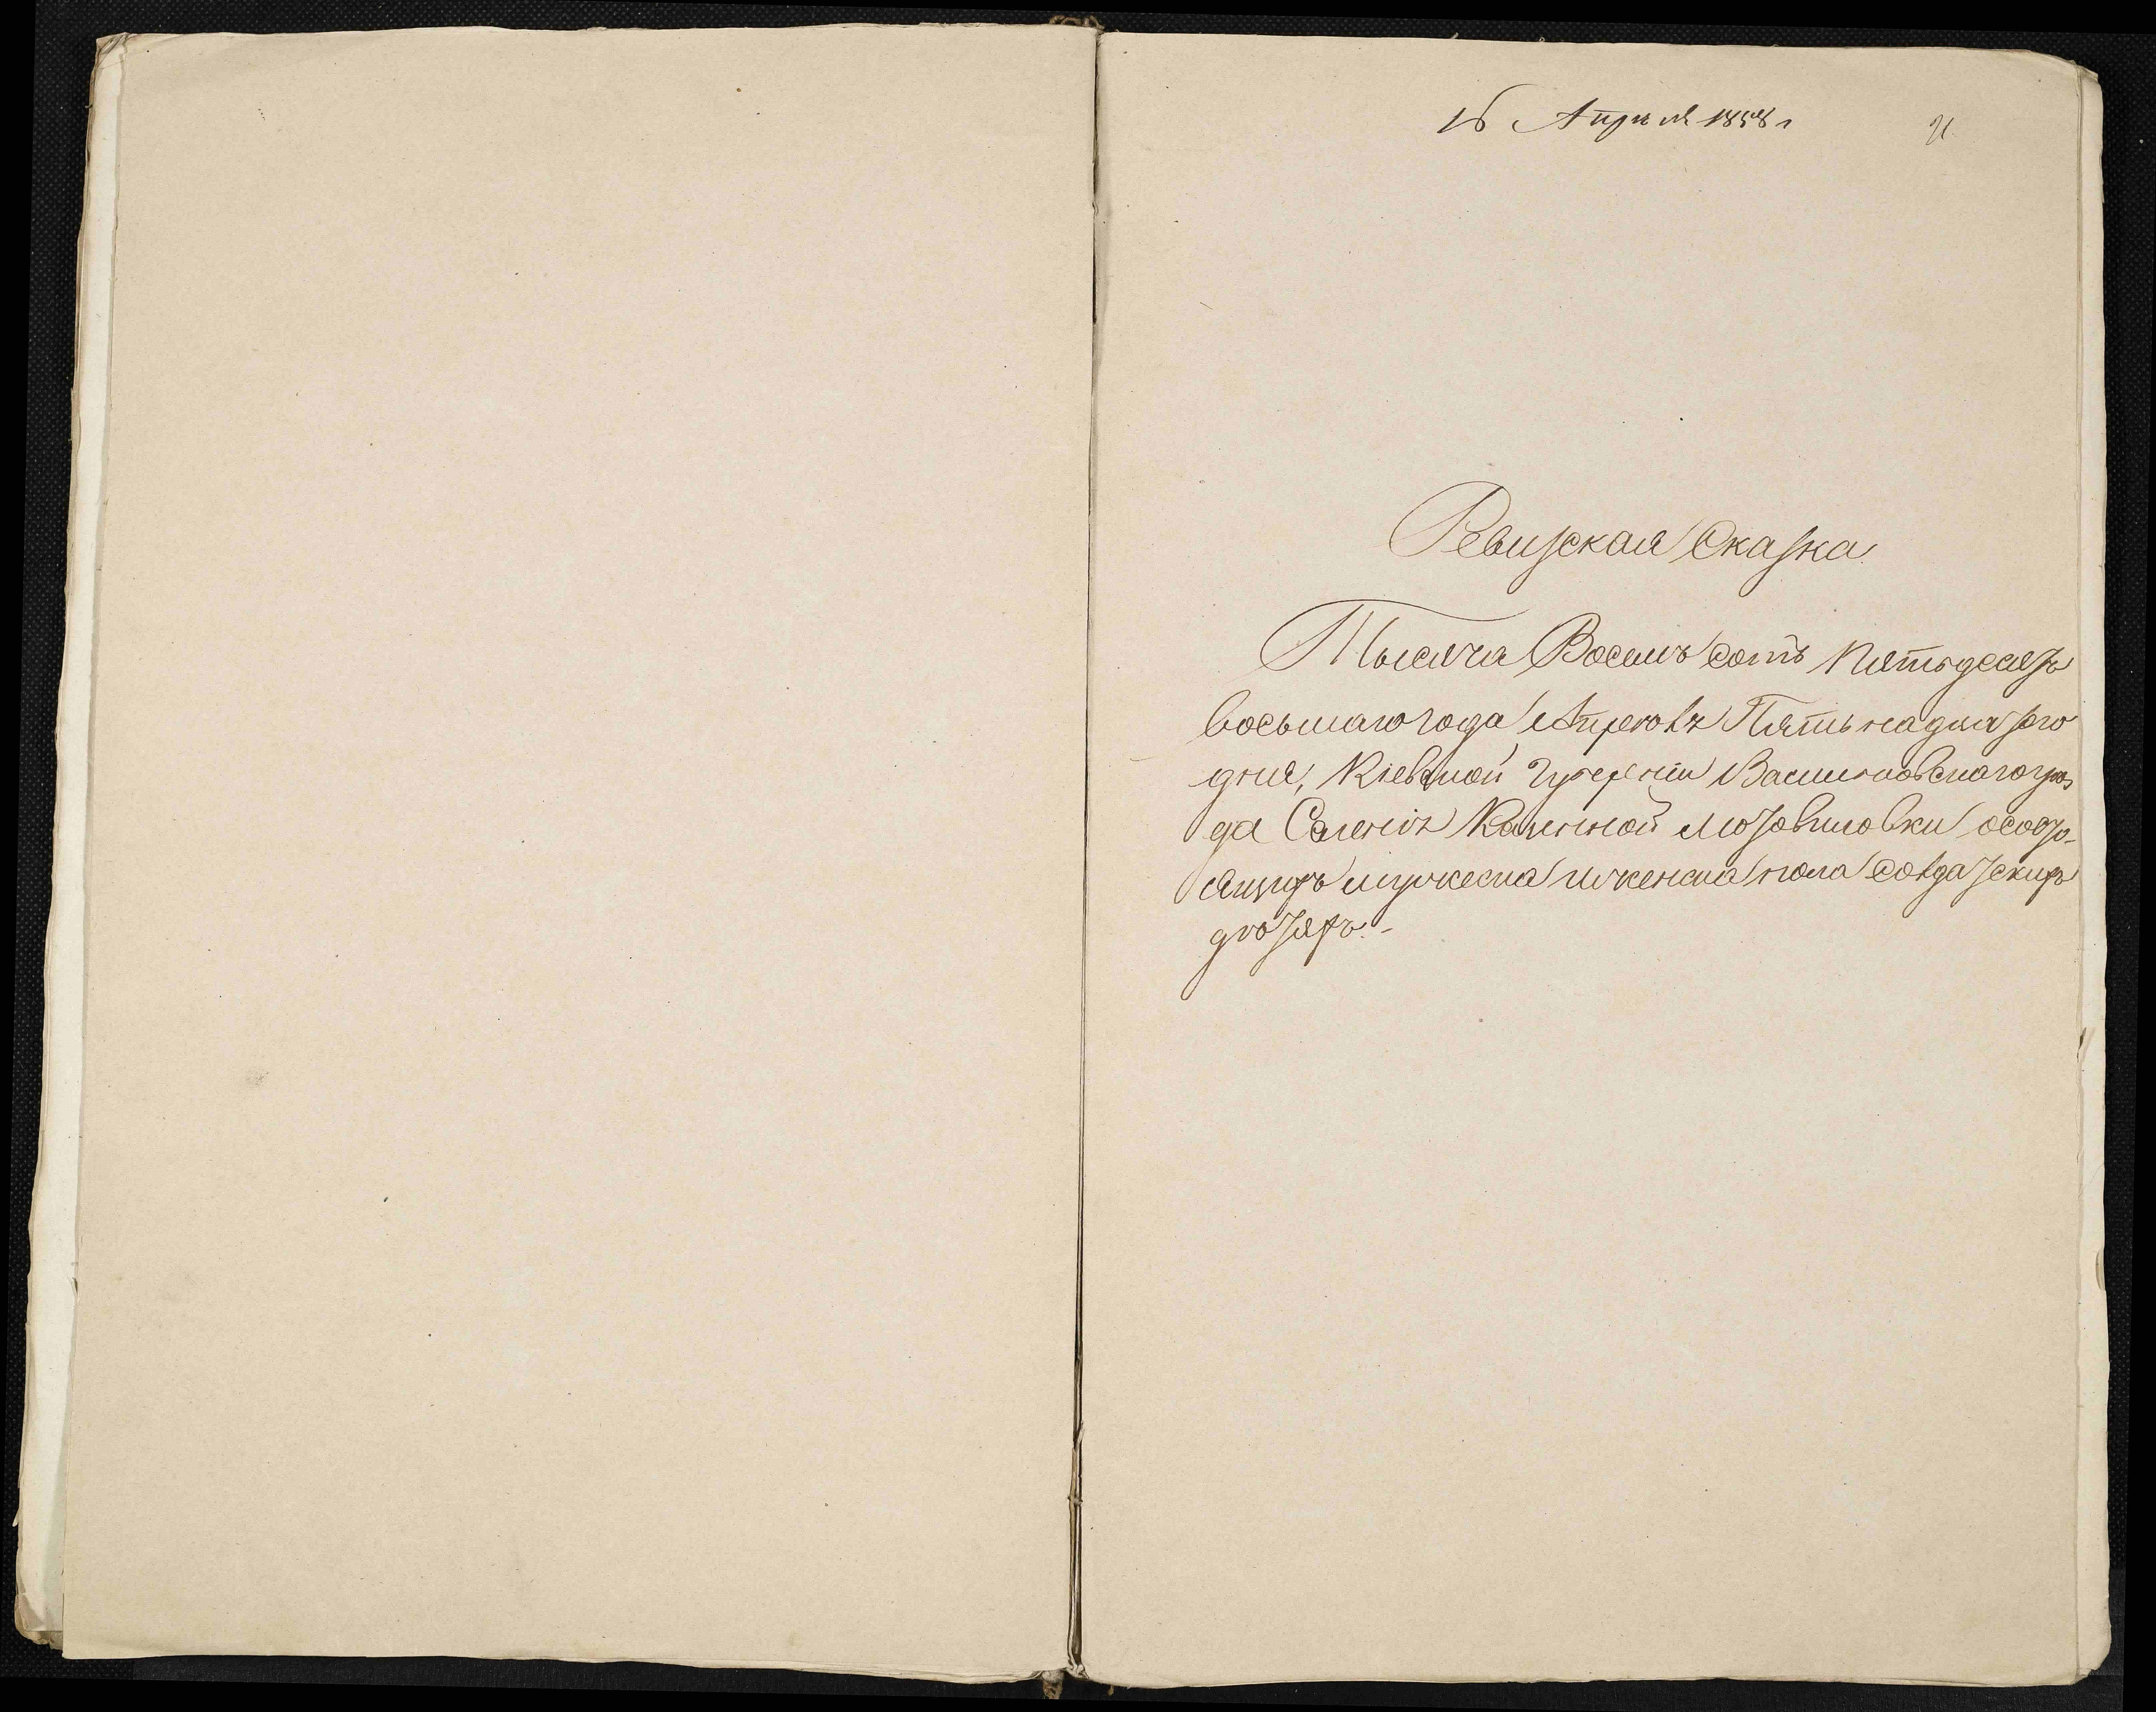 16 Апреля 1858 г
Ревизская Сказка
Тысяча Восемь сотъ Пятьдесятъ
восьмаго года Апреля Пятьнадцатого
дня, Кіевской Губерніи Васильковскаго уѣз
да Селенія Казенной Мотовиловки о состо-
ящихъ мужеска и женска пола солдатскихъ
дѣтяхъ.-